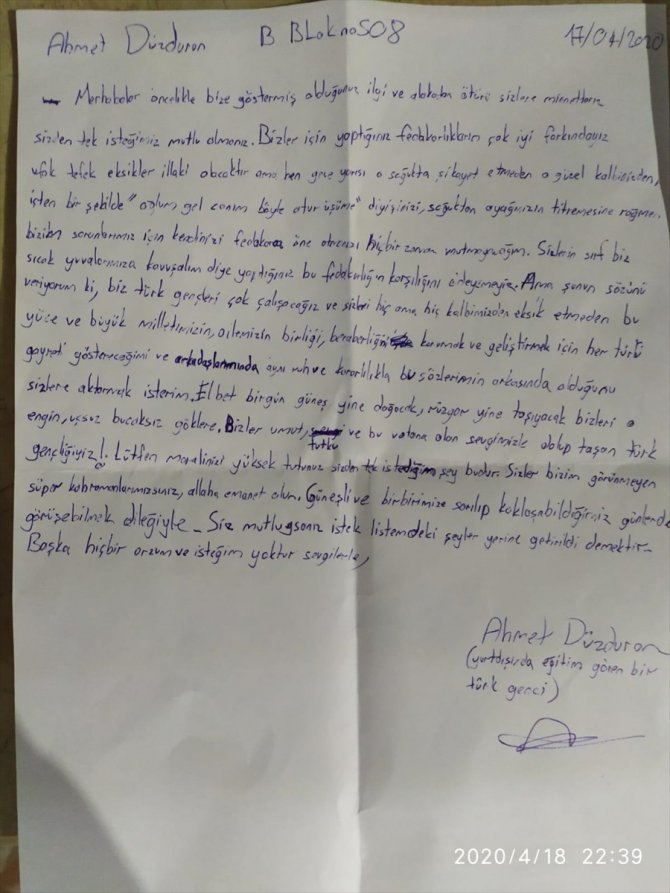 Ahmet Düzduran B BLok no508 17/04/2020
Merhabalar öncelikle bize göstermiş olduğunuz ilgi ve alakaba ötürü sizlere minnettarız
sizden tek isteğimiz mutlu olmanız. Bizler için yaptığınız fedakarlıkların çok iyi farkındayız
ufak tefek eksikler illaki olacaktır ama ben gece yarısı o soğukta şikayet etmeden o güzel kalbinizden,
içten bir şekilde "oğlum gel canım böyle otur üşüme" diyişinizi, soğuktan ayağınızın titremesine rağmen
bizim sorunlarımız için kendinizi öne atmanızı hiçbir zaman unutmayacağım. Sizlerin sırf biz
sıcak yuvalarımıza kavuşalım diye yaptığınız bu fedakarlığın karşılığını ödeyemeyiz. Ama şunun sözünü
veriyorum ki, biz türk gençleri çok çalışacağız ve sizleri hiç ama hiç kalbimizden eksik etmeden bu
yüce ve büyük milletimizin, ailemizin birliği, beraberliğini korumak ve geliştirmek için her türlü
gayreti göstereceğimi ve arkadaşlarımında aynı ruh ve kararlılıkla bu sözlerimin arkasında olduğunu
sizlere aktarmak isterim. Elbet birgün güneş yine doğacak, rüzgar yine taşıyacak bizleri o
engin, uçsuz bucaksız göklere. Bizler umut, tutku ve bu vatana olan sevgimizle dolup taşan türk
gençliğiyiz!. Lütfen moralinizi yüksek tutunuz sizden tek istediğim şey budur. Sizler bizim görünmeyen
süper kahramanlarımızsınız, allaha emanet olun. Güneşli ve birbirimize sarılıp koklaşabildiğimiz günlerde
görüşebilmek dileğiyle. Siz mutluysanız istek listemdeki şeyler yerine getirildi demektir.
Başka hiçbir arzum ve isteğim yoktur sevgilerle,
Ahmet Düzduran
(yurtdışında eğitim gören bir
türk genci)
2020/4/18 22:39